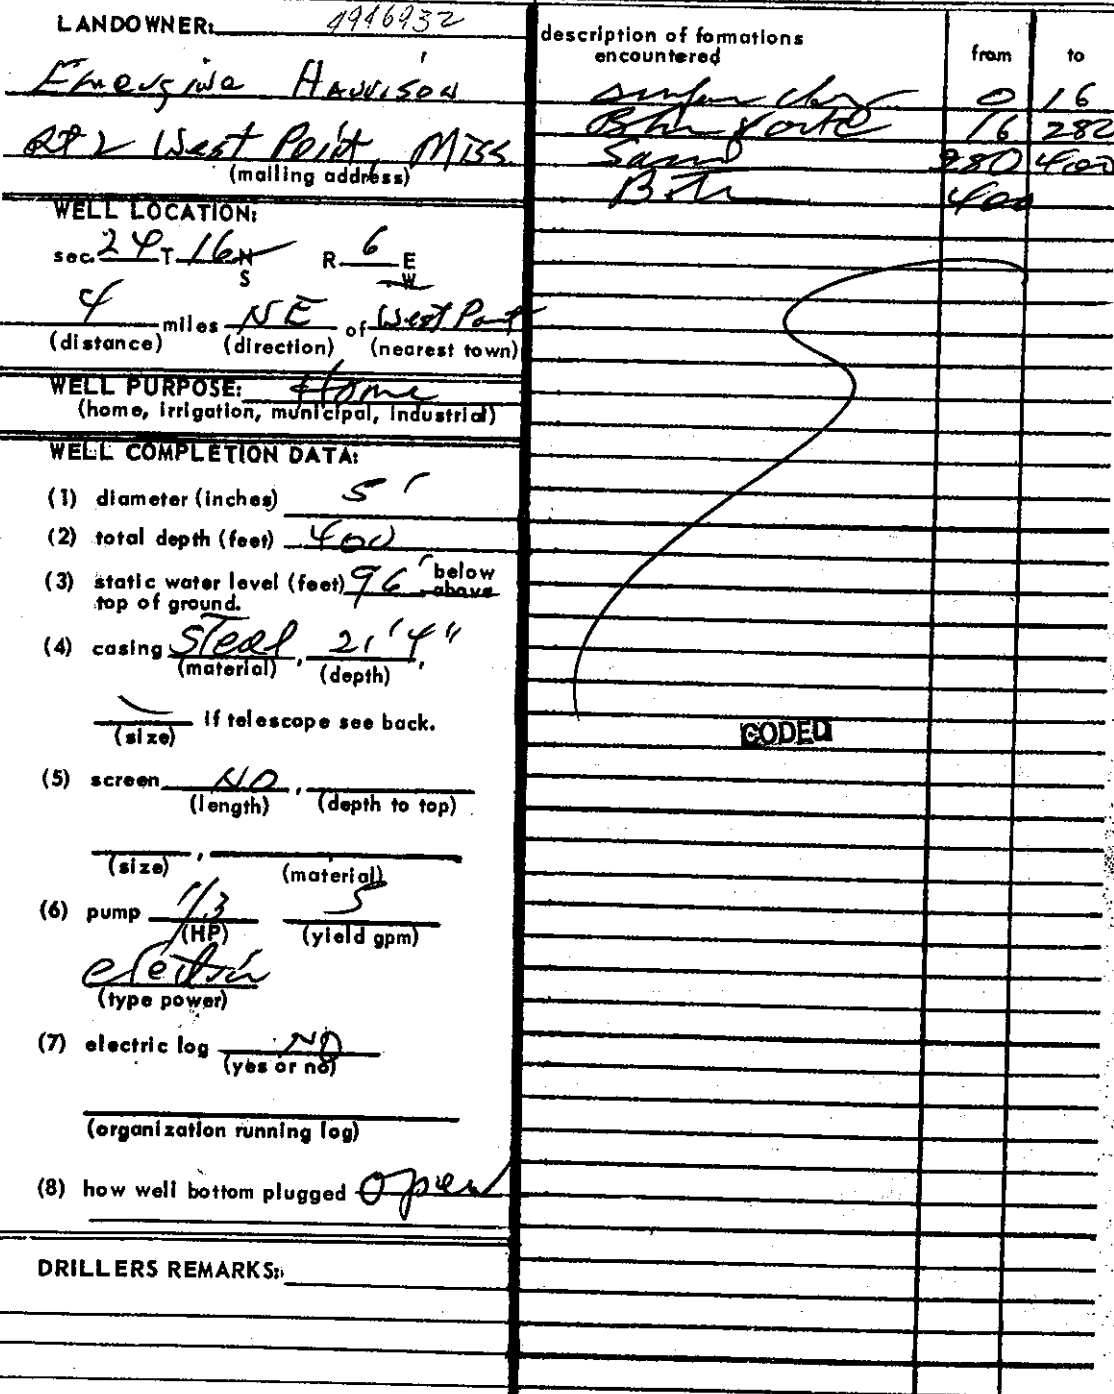 LANDOWNER: 4946932
Emergine Harrison
Rt 2 West Point, Miss
(mailing address)
WELL LOCATION:
sec. 24 T 16 N R 6 E
S W
4 miles NE of West Point
(distance) (direction) (nearest town)
WELL PURPOSE: Home
(home, irrigation, municipal, industrial)
WELL COMPLETION DATA:
(1) diameter (inches) 5'
(2) total depth (feet) 400
(3) static water level (feet) 96' below
above
top of ground.
(4) casing Steel, 21'4",
(material) (depth)
(size) If telescope see back.
(5) screen NO,
(length) (depth to top)
(size) , (material)
(6) pump 1/3 5
(HP) (yield gpm)
electric
(type power)
(7) electric log NO
(yes or no)
(organization running log)
(8) how well bottom plugged open
DRILLERS REMARKS:
description of formations
encountered from to
surface clay 0 16
16 282
Sand 280 400
400
CODED